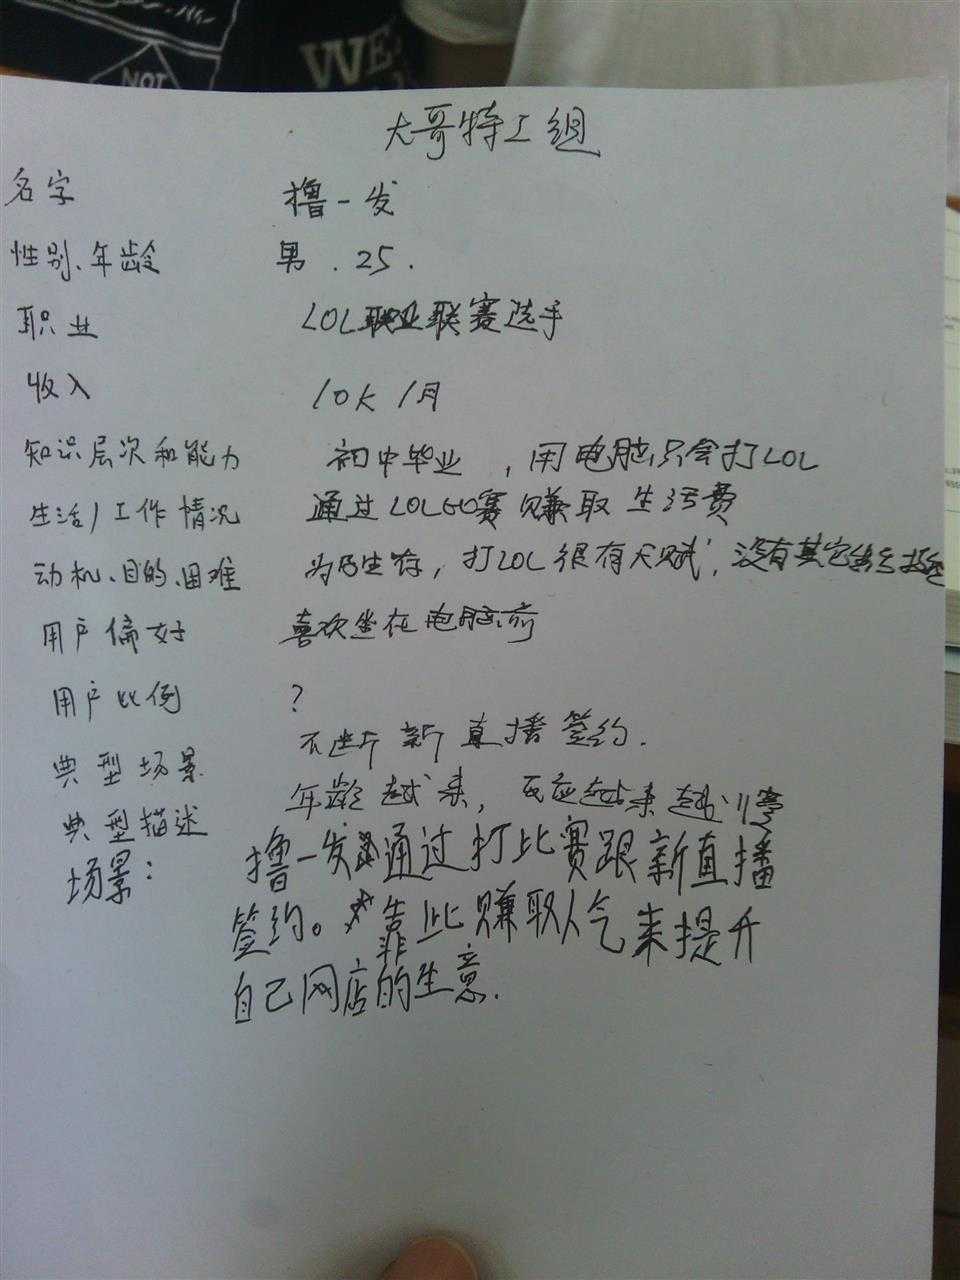 NOT
WE
大哥特工组
名字 撸一发
性别、年龄 男 . 25 .
职业 LOL职业联赛选手
收入 10K /月
知识层次和能力 初中毕业 , 用电脑只会打LOL
生活/工作情况 通过LOLGO赛赚取生活费
动机、目的、困难 为了生存, 打LOL很有天赋, 没有其它
用户偏好 喜欢坐在电脑前
用户比例 ?
典型场景 不断新直播签约.
典型描述 年龄越来, 反应越来越慢
场景: 撸一发通过打比赛跟新直播
签约。靠此赚取人气来提升
自己网店的生意.